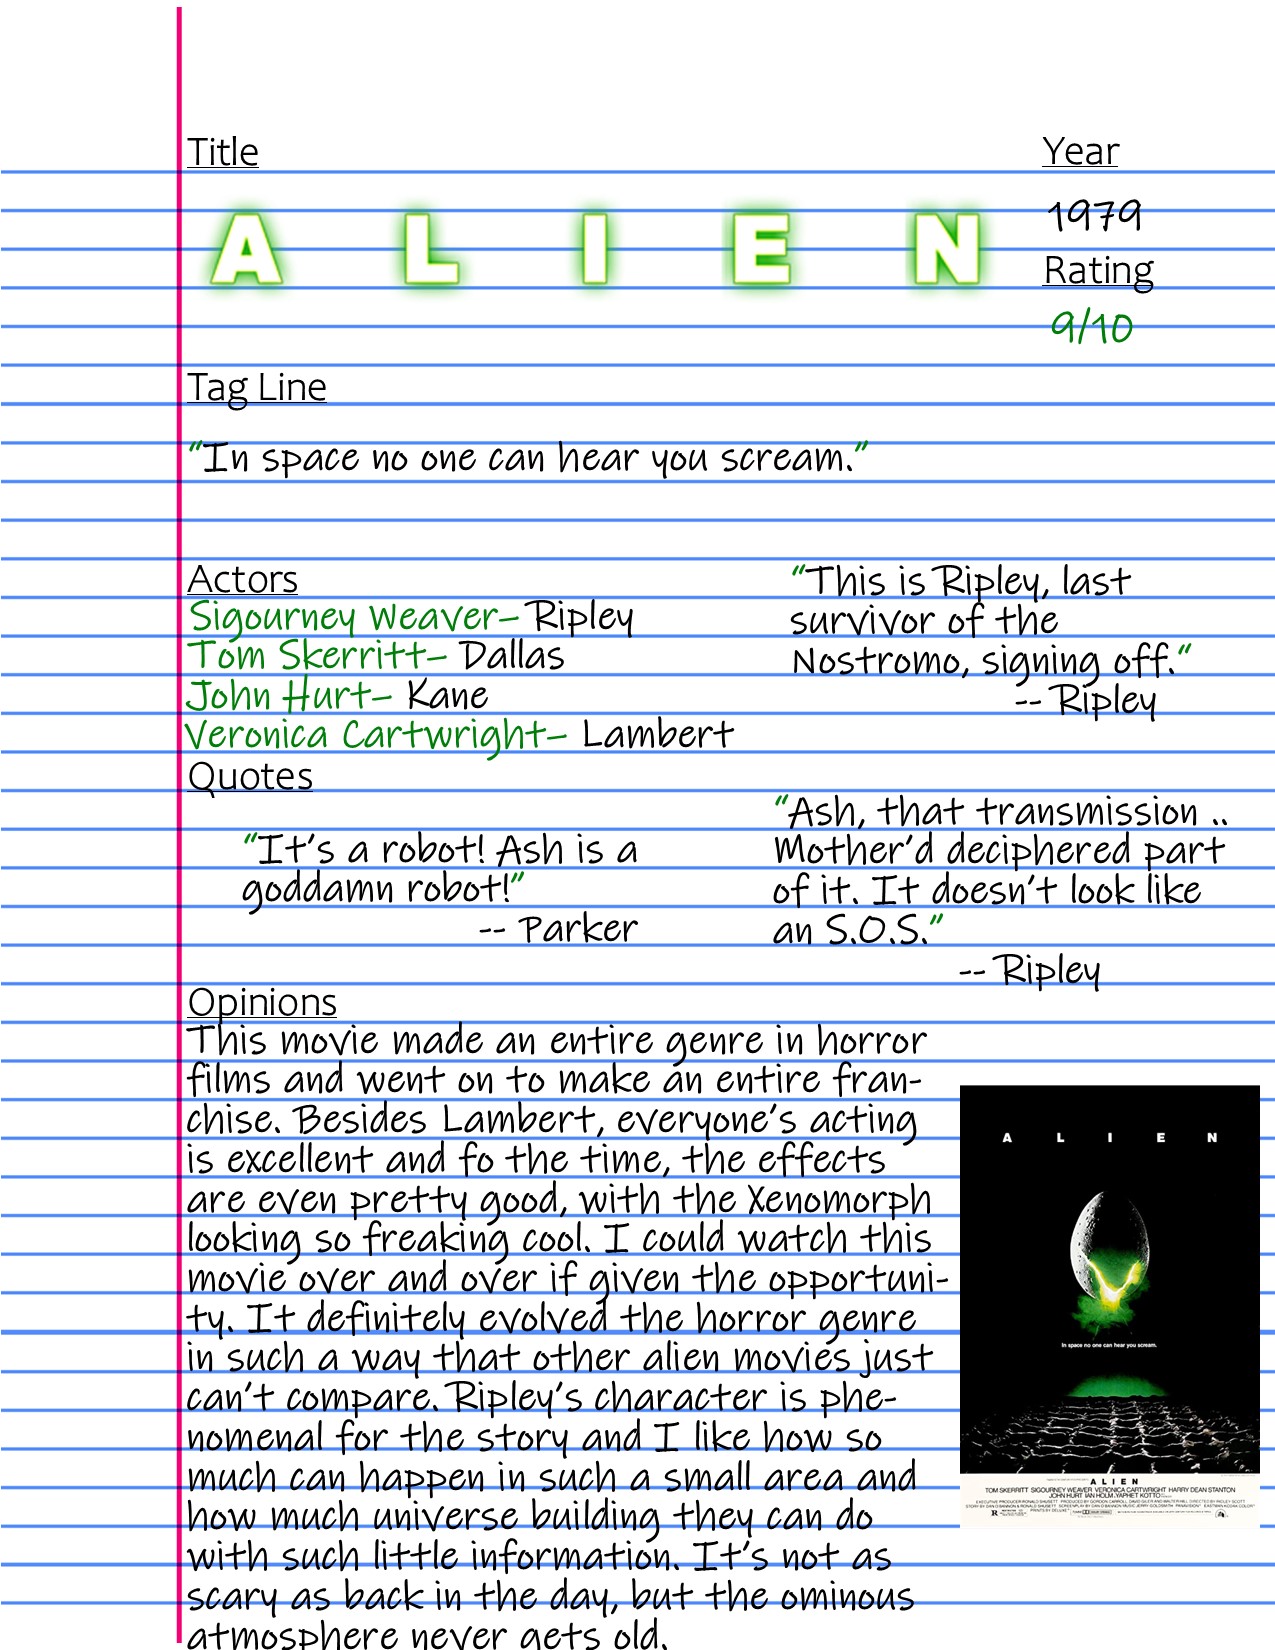 Title
Year
A L I E N
1979
Rating
9/10
Tag Line
"In space no one can hear you scream."
Actors
Sigourney Weaver– Ripley
Tom Skerritt– Dallas
John Hurt– Kane
Veronica Cartwright– Lambert
"This is Ripley, last
survivor of the
Nostromo, signing off."
-- Ripley
Quotes
"It's a robot! Ash is a
goddamn robot!"
-- Parker
"Ash, that transmission ..
Mother'd deciphered part
of it. It doesn't look like
an S.O.S."
-- Ripley
Opinions
This movie made an entire genre in horror
films and went on to make an entire fran-
chise. Besides Lambert, everyone's acting
is excellent and fo the time, the effects
are even pretty good, with the Xenomorph
looking so freaking cool. I could watch this
movie over and over if given the opportuni-
ty. It definitely evolved the horror genre
in such a way that other alien movies just
can't compare. Ripley's character is phe-
nomenal for the story and I like how so
much can happen in such a small area and
how much universe building they can do
with such little information. It's not as
scary as back in the day, but the ominous
atmosphere never gets old.
A L I E N
In space no one can hear you scream.
ALIEN
TOM SKERRITT SIGOURNEY WEAVER VERONICA CARTWRIGHT HARRY DEAN STANTON
JOHN HURT IAN HOLM YAPHET KOTTO
R